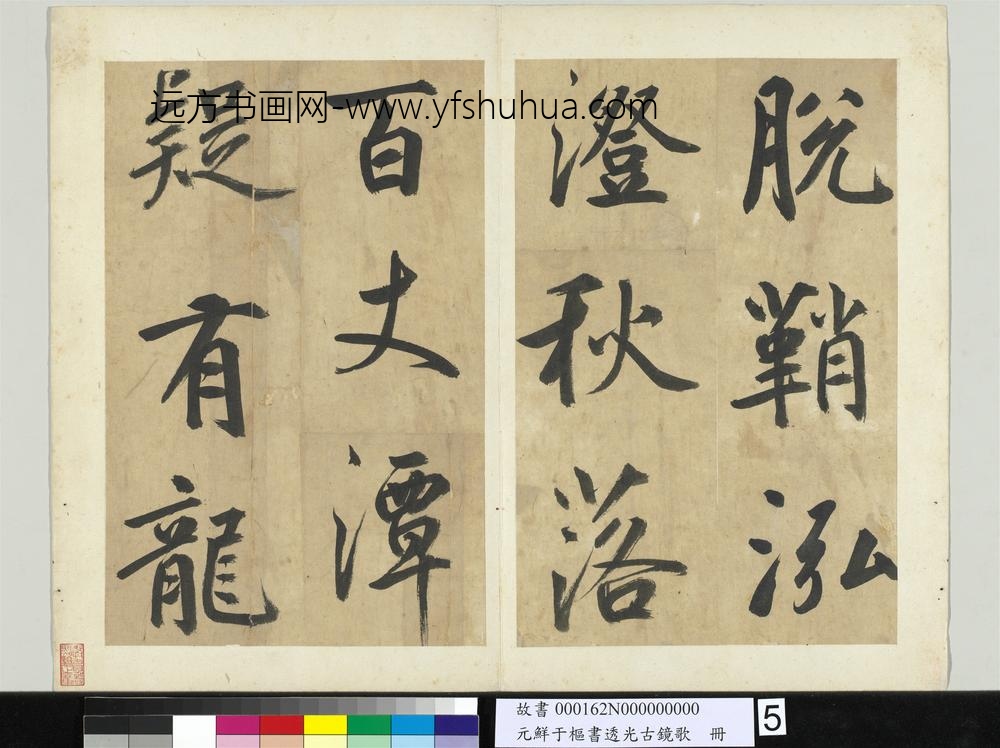 脫鞘泓
澄秋落
百丈潭
疑有龍
远方书画网-www.yfshuhua.com
故書 000162N000000000
元鮮于樞書透光古鏡歌 冊
5